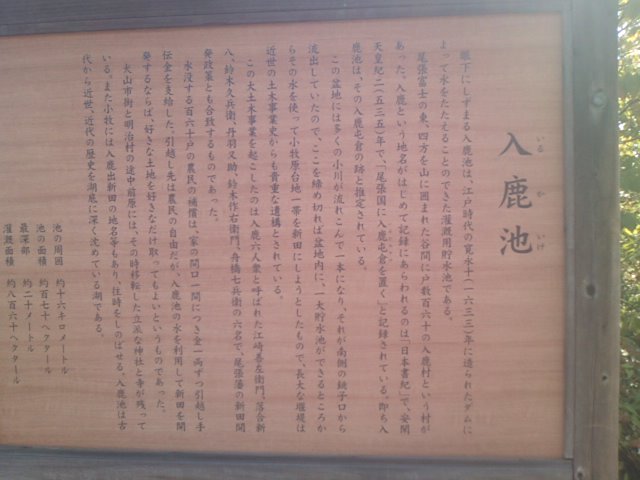 入鹿池
いるかいけ
眼下にしずまる入鹿池は、江戸時代の寛永十(一六三三)年に造られたダムに
よって水をたたえることのできた灌漑用貯水池である。
尾張富士の東、四方を山に囲まれた谷間に戸数百六十の入鹿村という村が
あった。入鹿という地名がはじめて記録にあらわれるのは「日本書紀」で、安閑
天皇紀二(五三五)年で、「尾張国に入鹿屯倉を置く」と記録されている。即ち入
鹿池は、その入鹿屯倉の跡と推定されている。
この盆地には多くの小川が流れこんで一本になり、それが南側の銚子口から
流出していたので、ここを締め切れば盆地内に、一大貯水池ができるところか
らその水を使って小牧原台地一帯を新田にしようとしたもので、長大な堰堤は
近世の土木事業史からも貴重な遺構とされている。
この大土木事業を起こしたのは入鹿六人衆と呼ばれた江崎善左衛門、落合新
八、鈴木久兵衛、丹羽又助、鈴木作右衛門、舟橋七兵衛の六名で、尾張藩の新田開
発政策とも合致するものであった。
水没する百六十戸の農民の補償は、家の間口一間につき金一両ずつ引越し手
伝金を支給した。引越し先は農民の自由だが、入鹿池の水を利用して新田を開
発するならば、好きな土地を好きなだけ取ってもよいというものであった。
犬山市街と明治村の途中前原には、その時移転した立派な神社と寺が残って
いる。また小牧には入鹿出新田の地名等もあり、往時をしのばせる。入鹿池は古
代から近世、近代の歴史を湖底に深く沈めている湖である。
池の周囲 約十六キロメートル
池の面積 約百七十ヘクタール
最深部 約二十メートル
灌漑面積 約八百六十ヘクタール